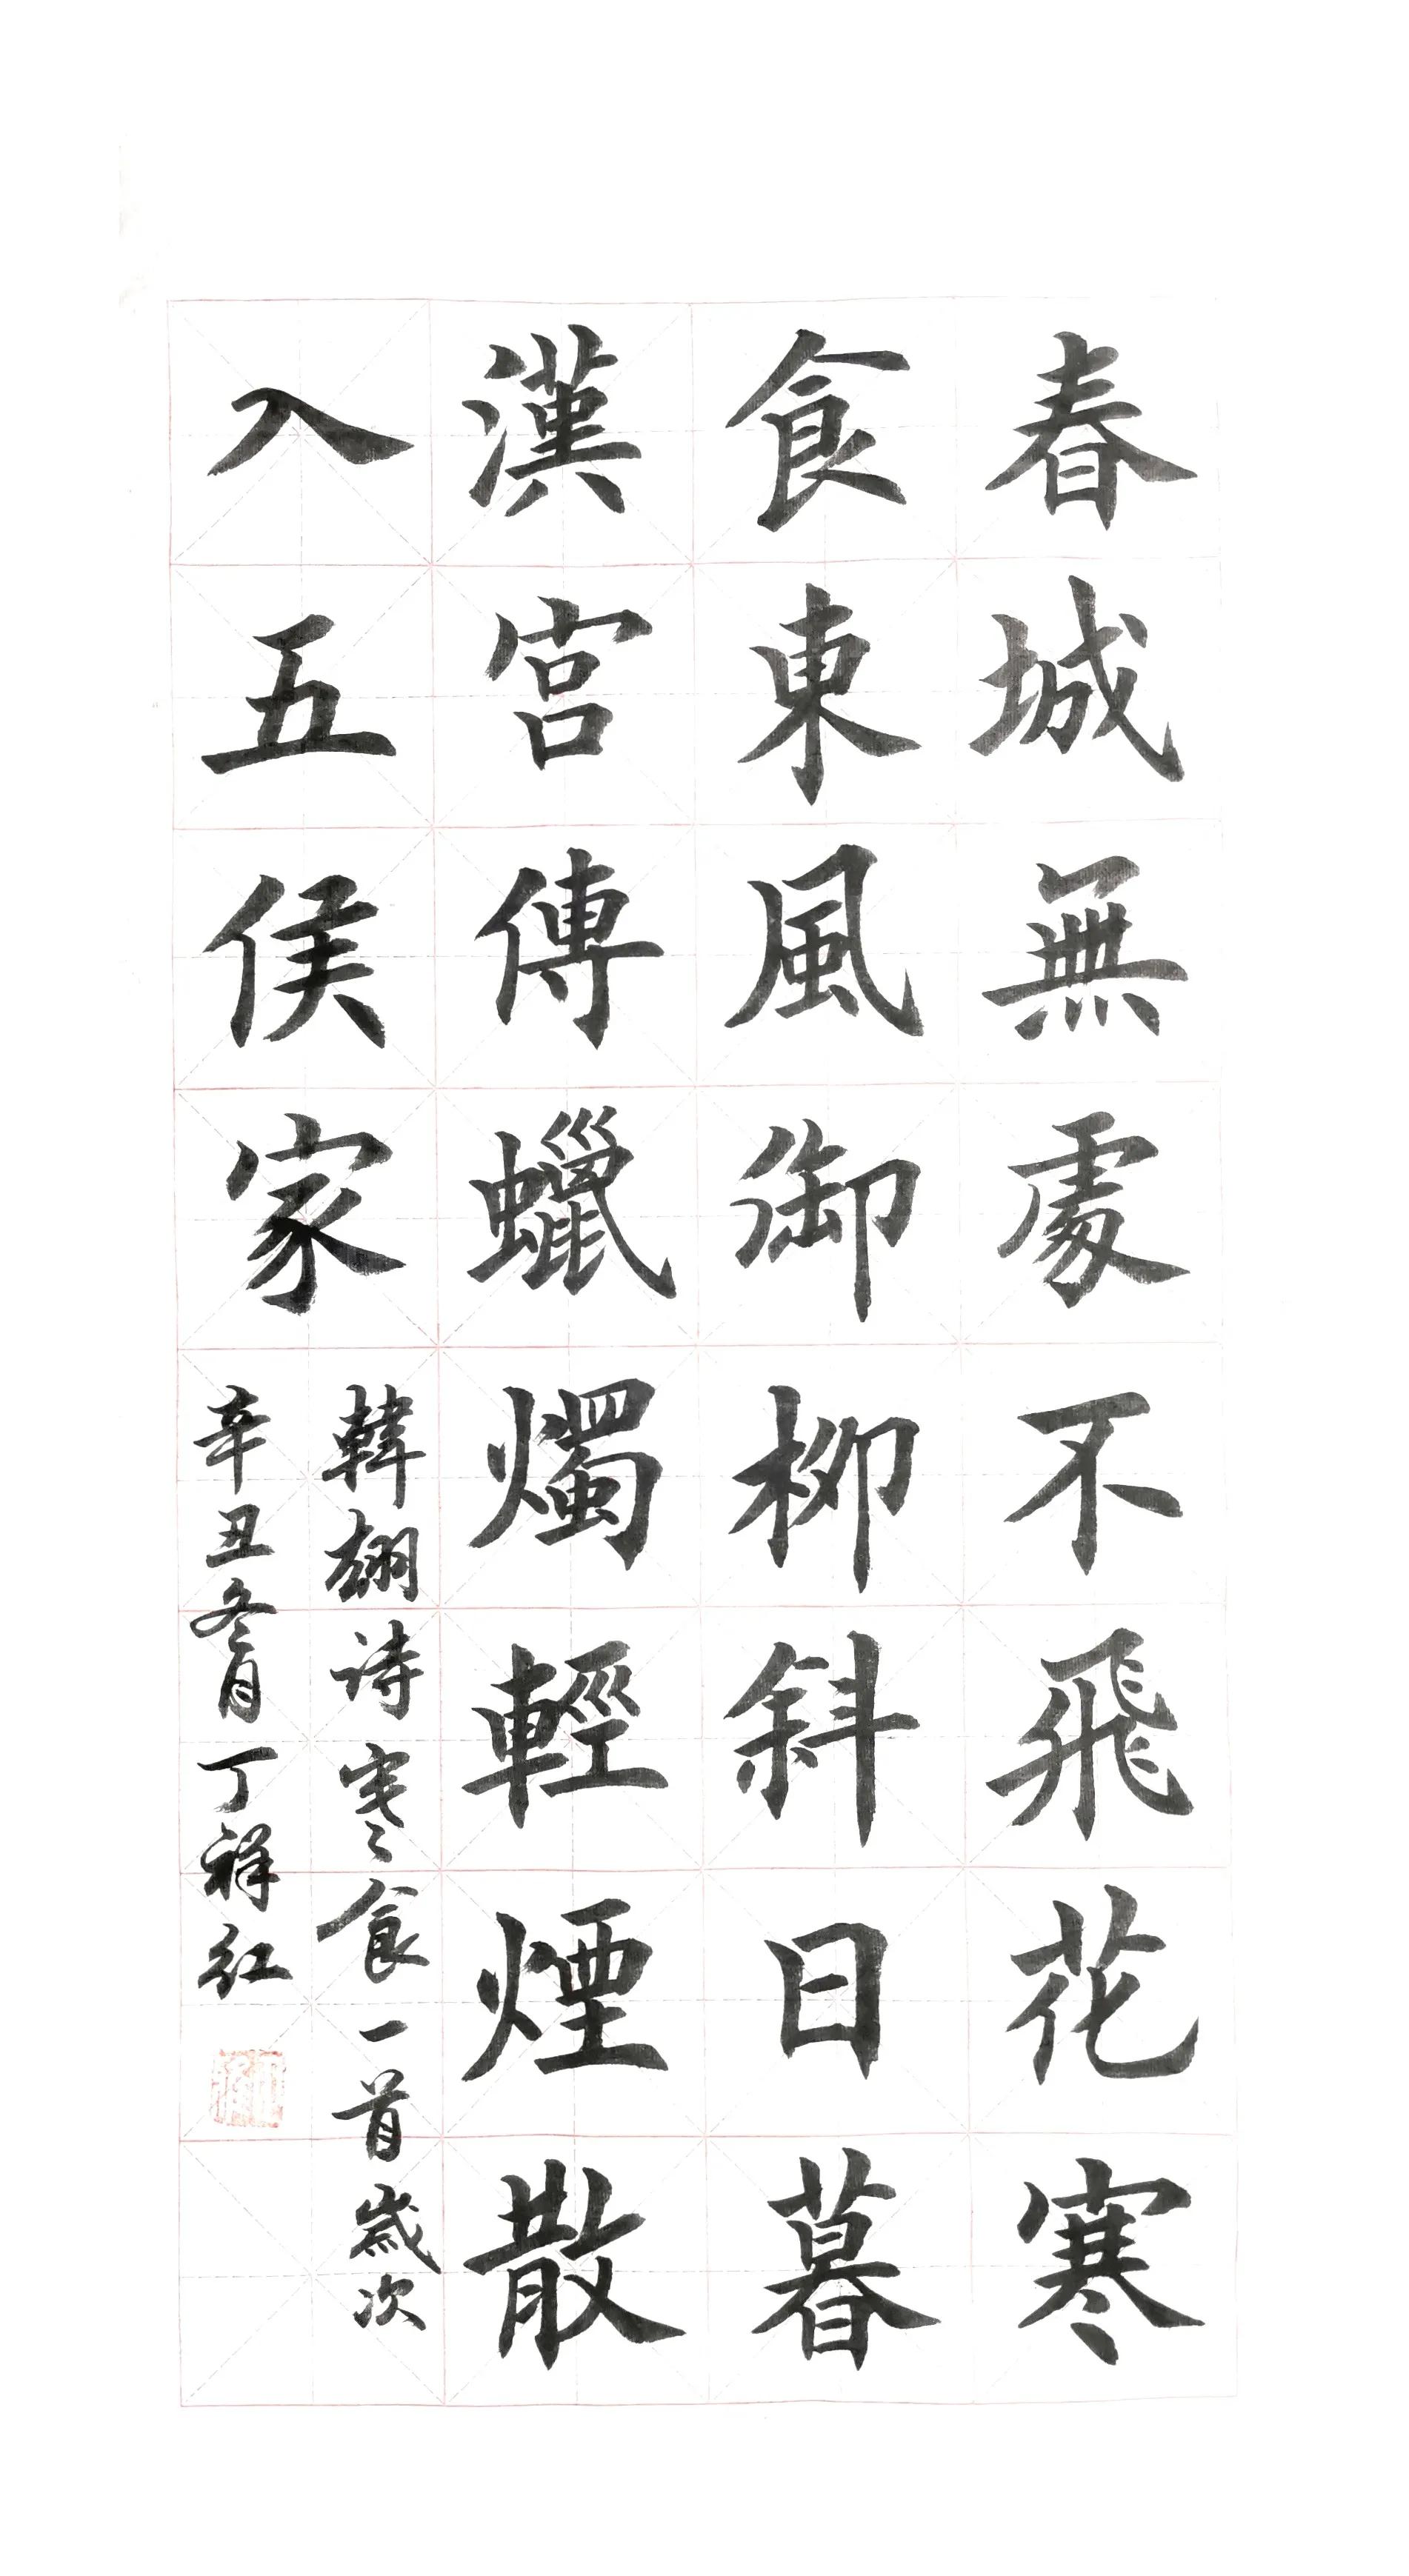 春城無處不飛花寒
食東風御柳斜日暮
漢宮傳蠟燭輕煙散
入五侯家
韓翃诗寒食一首歲次
辛丑冬月丁祥红